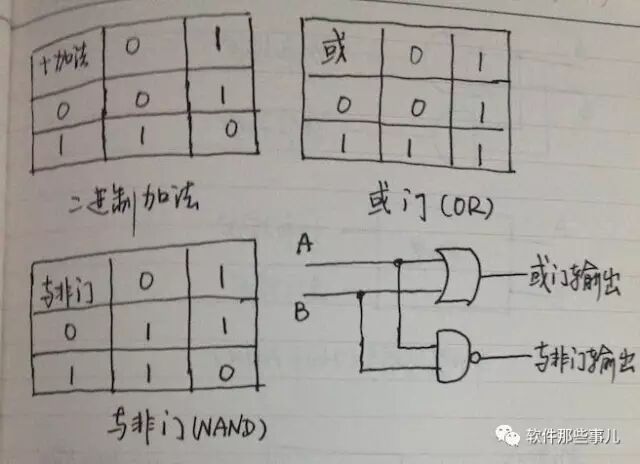 +加法 0 1
0 0 1
1 1 0
二进制加法
或 0 1
0 0 1
1 1 1
或门(OR)
与非门 0 1
0 1 1
1 1 0
与非门(NAND)
A
B
或门输出
与非门输出
软件那些事儿